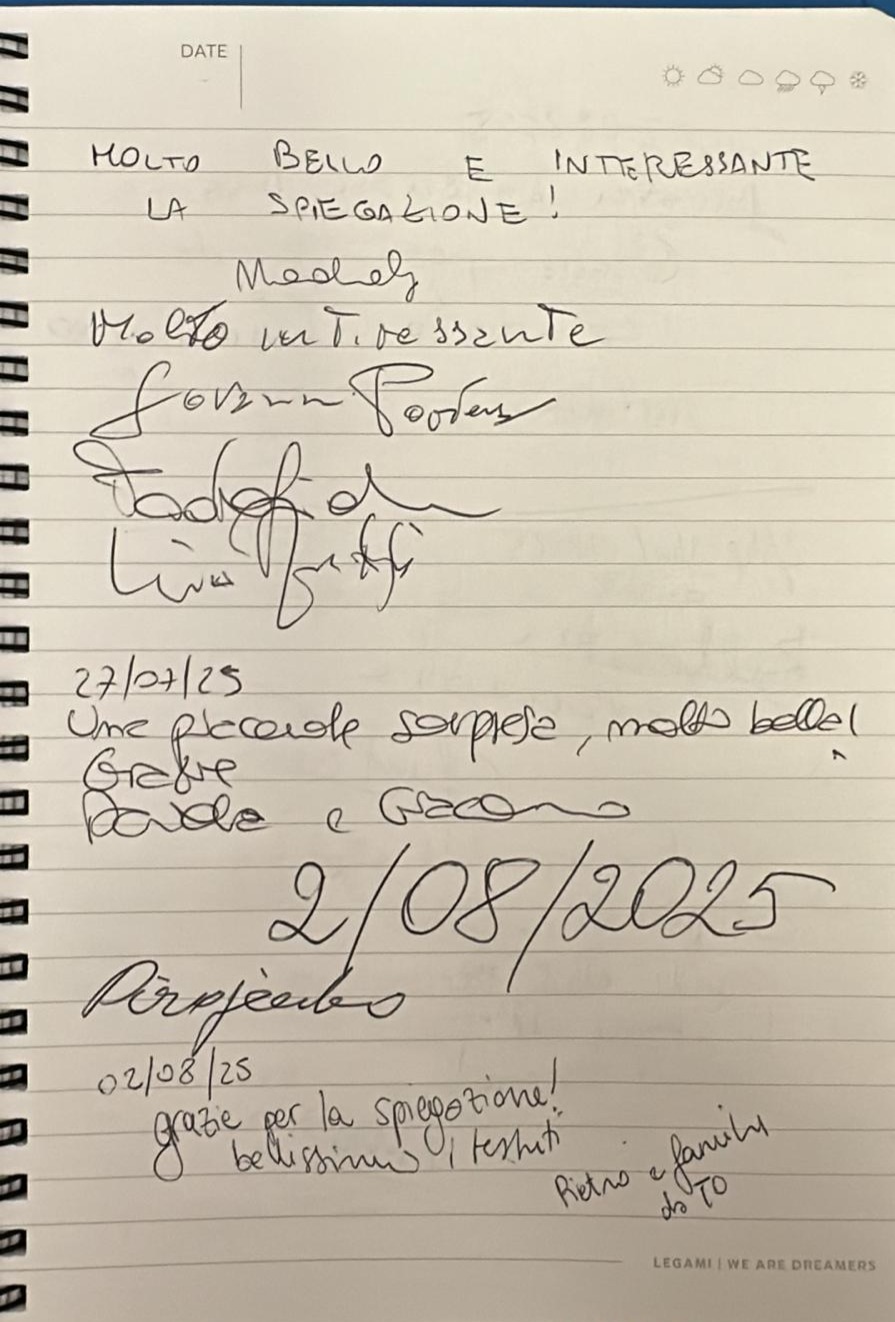 DATE
MOLTO BELLO E INTERESSANTE
LA SPIEGAZIONE!
Molto
27/07/25
Una piacevole sorpresa, molto bella!
Grazie
Davide e Giacomo
2/08/2025
02/08/25
grazie per la spiegazione!
bellissimi i tessuti
Pietro e family
da TO
LEGAMI | WE ARE DREAMERS